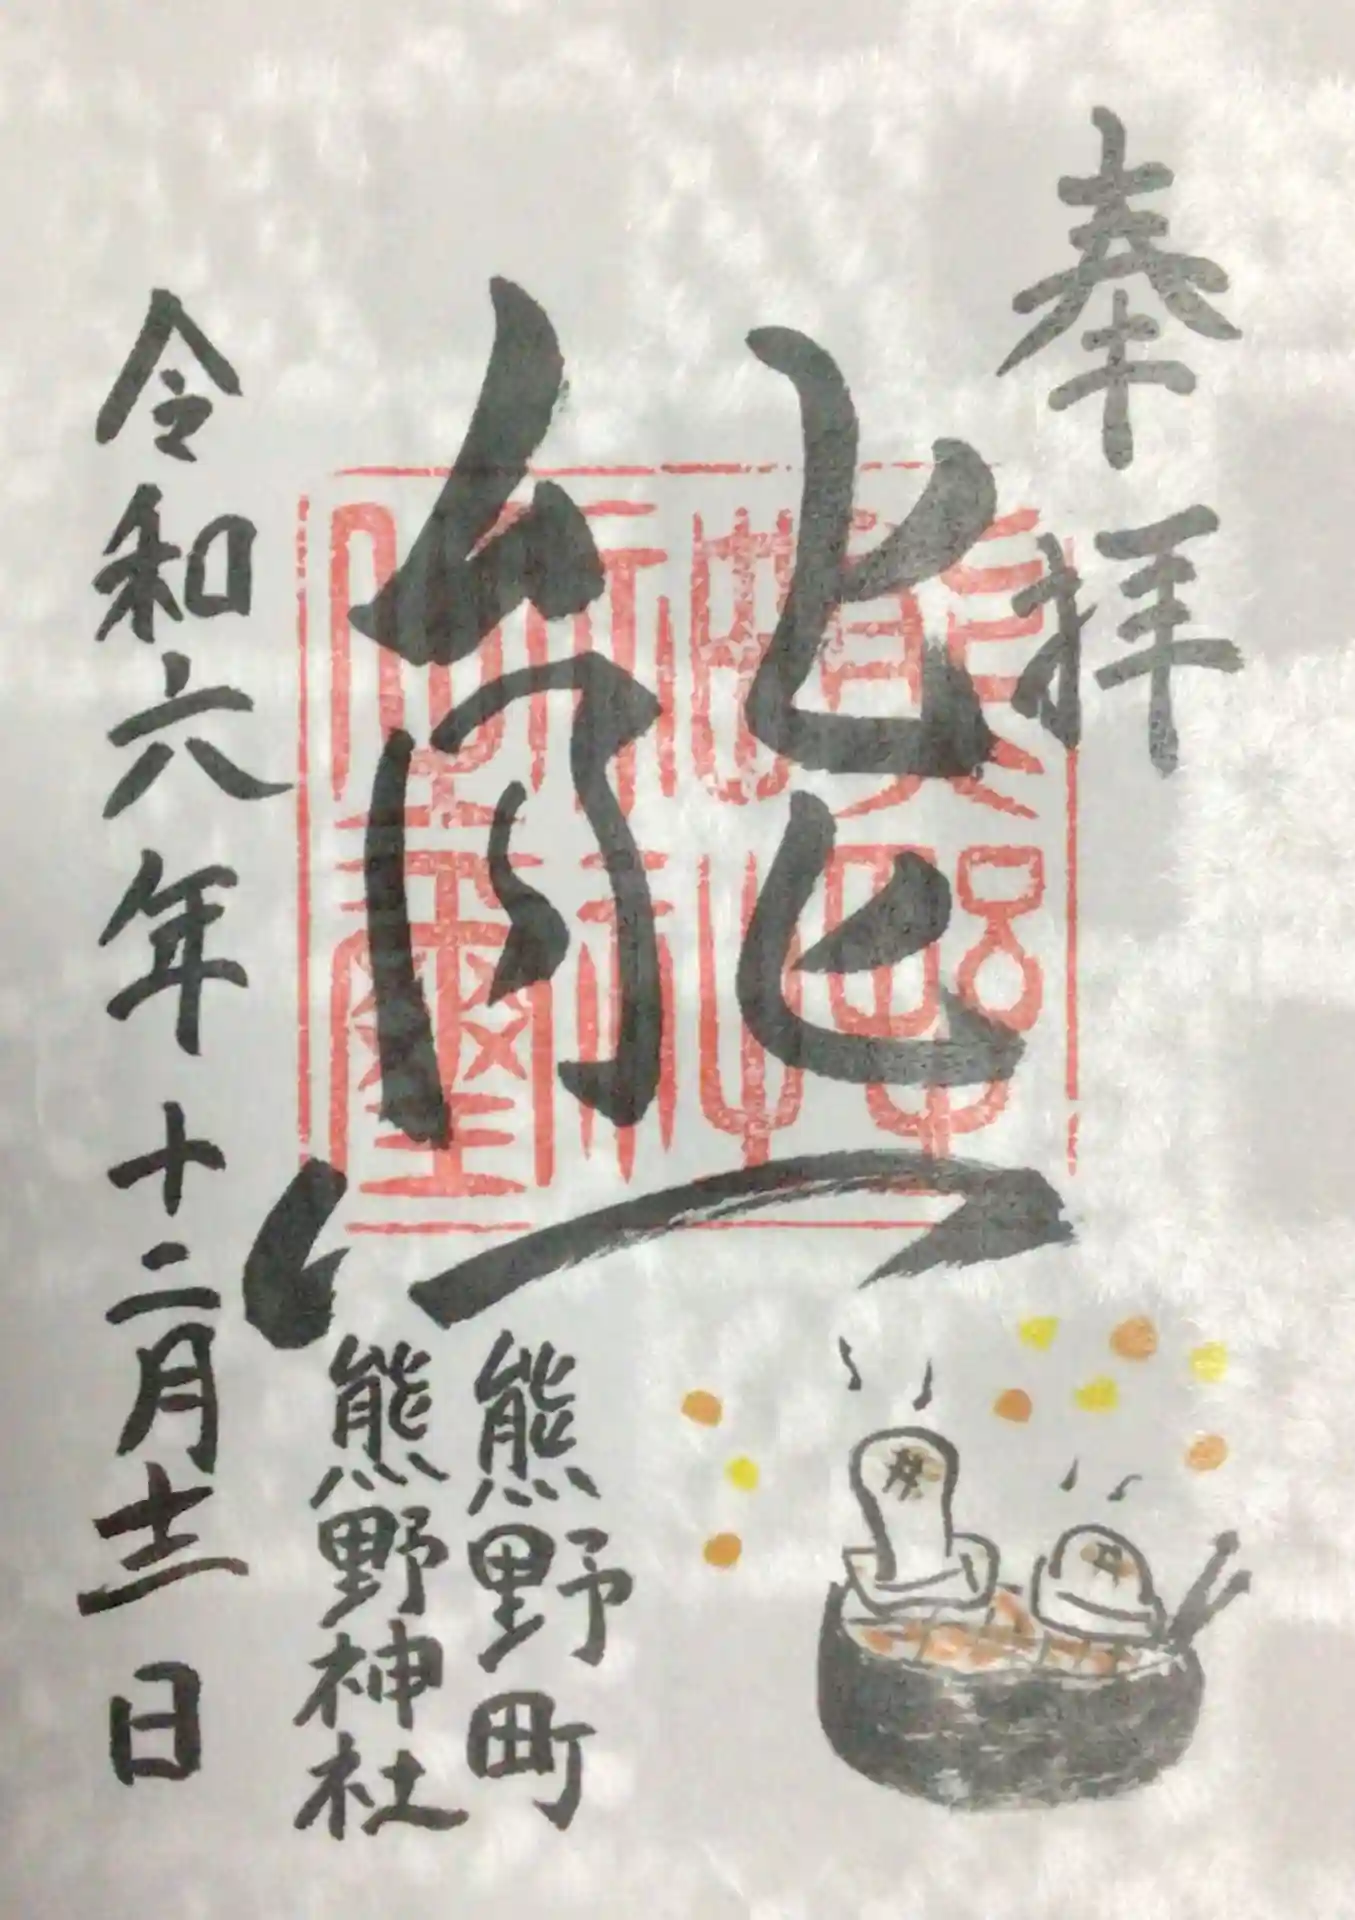 奉拝
熊
熊野町
熊野神社
令和六年十二月十三日